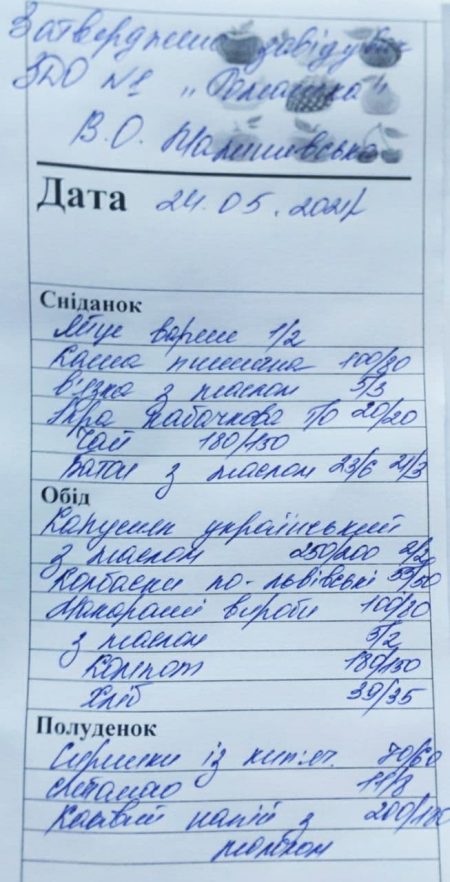 Затверджено завідувач
ЗДО №1 "Ромашка"
В.О.
Дата 24.05.2024
Сніданок
Яйце варене 1/2
Каша пшоняна 100/80
в'язка з маслом 5/3
Ікра кабачкова т/о 20/20
Чай 180/150
Батон з маслом 23/6 21/3
Обід
Капусняк український
з маслом 250/200 2/2
Ковбаски по-львівські
Макаронні вироби 100/80
з маслом 5/2
Компот 180/150
Хліб 39/35
Полуденок
Сирники із кип'яч. 70/60
сметаною 11/8
Кавовий напій з 200/180
молоком